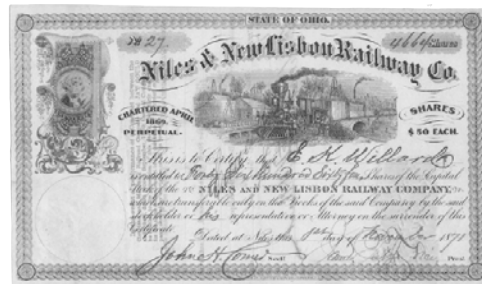 STATE OF OHIO.
No 27. 4665 SHARES
Niles & New Lisbon Railway Co.
CHARTERED APRIL
1869.
PERPETUAL.
SHARES
$50 EACH.
This is to Certify that E. K. Willard
is entitled to Forty Six Hundred Sixty five Shares of the Capital
Stock of the NILES AND NEW LISBON RAILWAY COMPANY,
transferable only on the Books of the said Company by the said
stockholder or his representative or Attorney on the surrender of this
Certificate
Dated at Niles this day of 1871
John H. Secy. Prest.